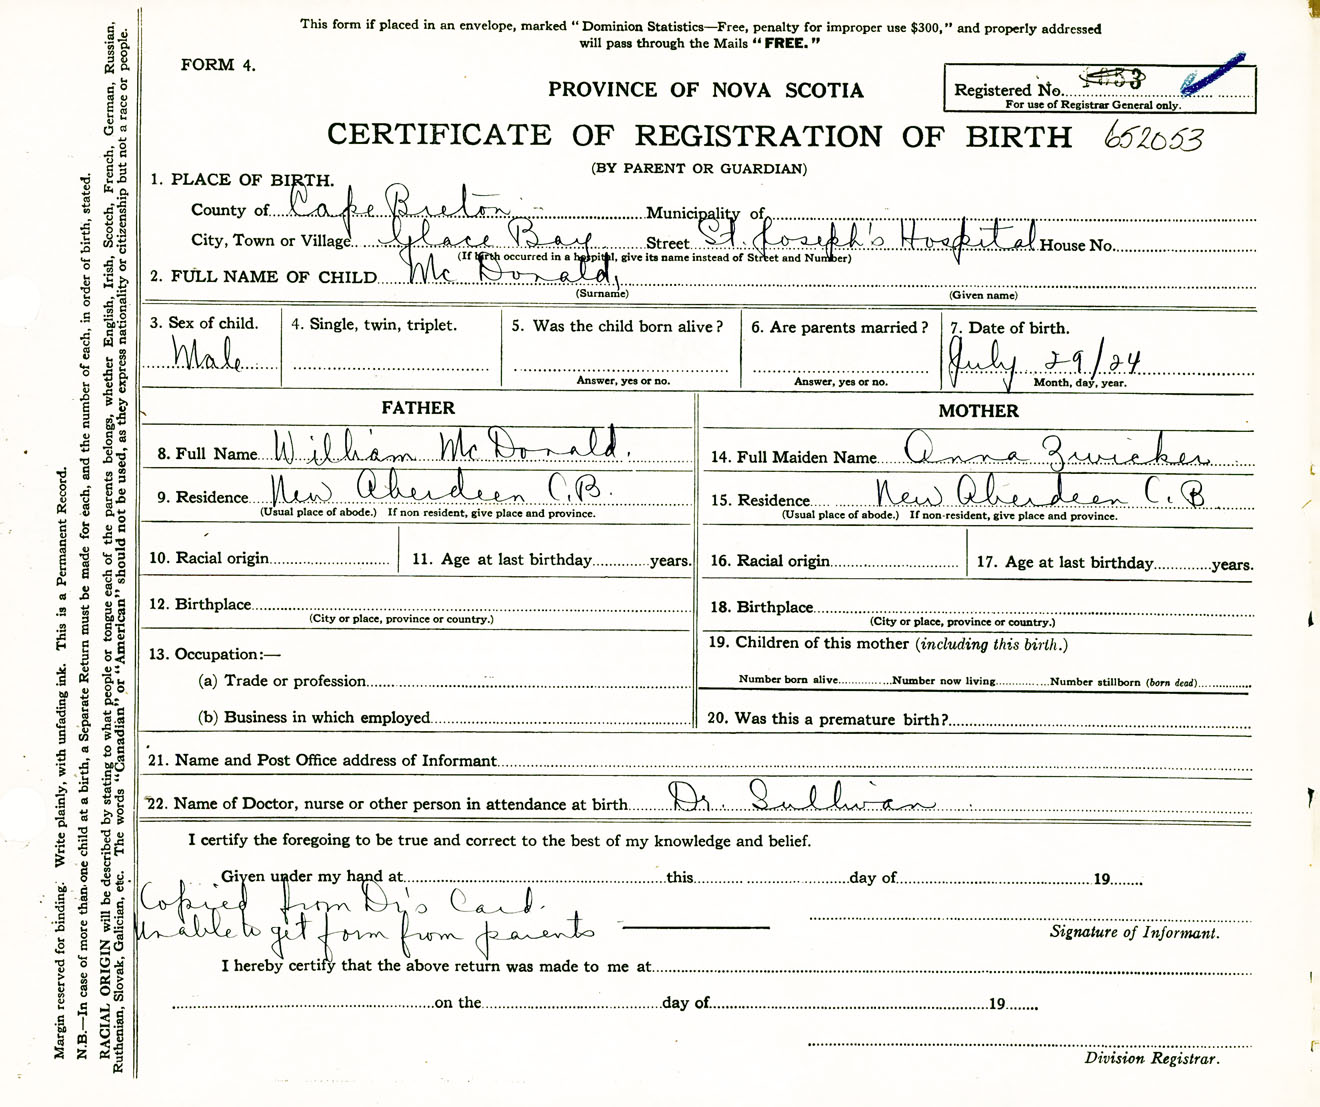 This form if placed in an envelope, marked "Dominion Statistics—Free, penalty for improper use $300," and properly addressed
will pass through the Mails "FREE."
FORM 4.
PROVINCE OF NOVA SCOTIA
Registered No.
For use of Registrar General only.
CERTIFICATE OF REGISTRATION OF BIRTH 652053
(BY PARENT OR GUARDIAN)
1. PLACE OF BIRTH.
County of Cape Breton Municipality of
City, Town or Village Glace Bay Street St. Joseph's Hospital House No.
(If birth occurred in a hospital, give its name instead of Street and Number)
2. FULL NAME OF CHILD Mc Donald,
(Surname) (Given name)
3. Sex of child. 4. Single, twin, triplet. 5. Was the child born alive? 6. Are parents married? 7. Date of birth.
Male July 29/24
Answer, yes or no. Answer, yes or no. Month, day, year.
FATHER MOTHER
8. Full Name William Mc Donald. 14. Full Maiden Name Anna Zwicker
9. Residence New Aberdeen C.B. 15. Residence New Aberdeen C.B
(Usual place of abode.) If non resident, give place and province. (Usual place of abode.) If non-resident, give place and province.
10. Racial origin 11. Age at last birthday years. 16. Racial origin 17. Age at last birthday years.
12. Birthplace 18. Birthplace
(City or place, province or country.) (City or place, province or country.)
13. Occupation:— 19. Children of this mother (including this birth.)
(a) Trade or profession Number born alive Number now living Number stillborn (born dead)
(b) Business in which employed 20. Was this a premature birth?
21. Name and Post Office address of Informant
22. Name of Doctor, nurse or other person in attendance at birth Dr. Sullivan
I certify the foregoing to be true and correct to the best of my knowledge and belief.
Given under my hand at this day of 19
Copied from Dr's Card.
Unable to get form from parents
Signature of Informant.
I hereby certify that the above return was made to me at
on the day of 19
Division Registrar.
Margin reserved for binding. Write plainly, with unfading ink. This is a Permanent Record.
N.B.—In case of more than one child at a birth, a Separate Return must be made for each, and the number of each, in order of birth, stated.
RACIAL ORIGIN will be described by stating to what people or tongue each of the parents belongs, whether English, Irish, Scotch, French, German, Russian,
Ruthenian, Slovak, Galician, etc. The words "Canadian" or "American" should not be used, as they express nationality or citizenship but not a race or people.